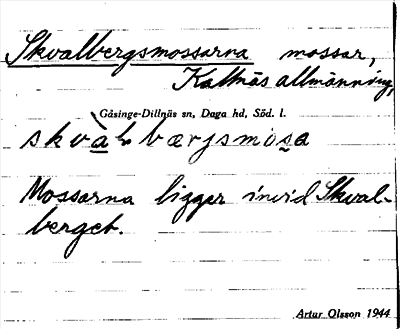 Skvalbergsmossarna mossar,
Kallnäs allmänning,
Gåsinge-Dillnäs sn, Daga hd, Söd. l.
skvàlbærjsmosa
Mossarna ligger invid Skval-
berget.
Artur Olsson 1944